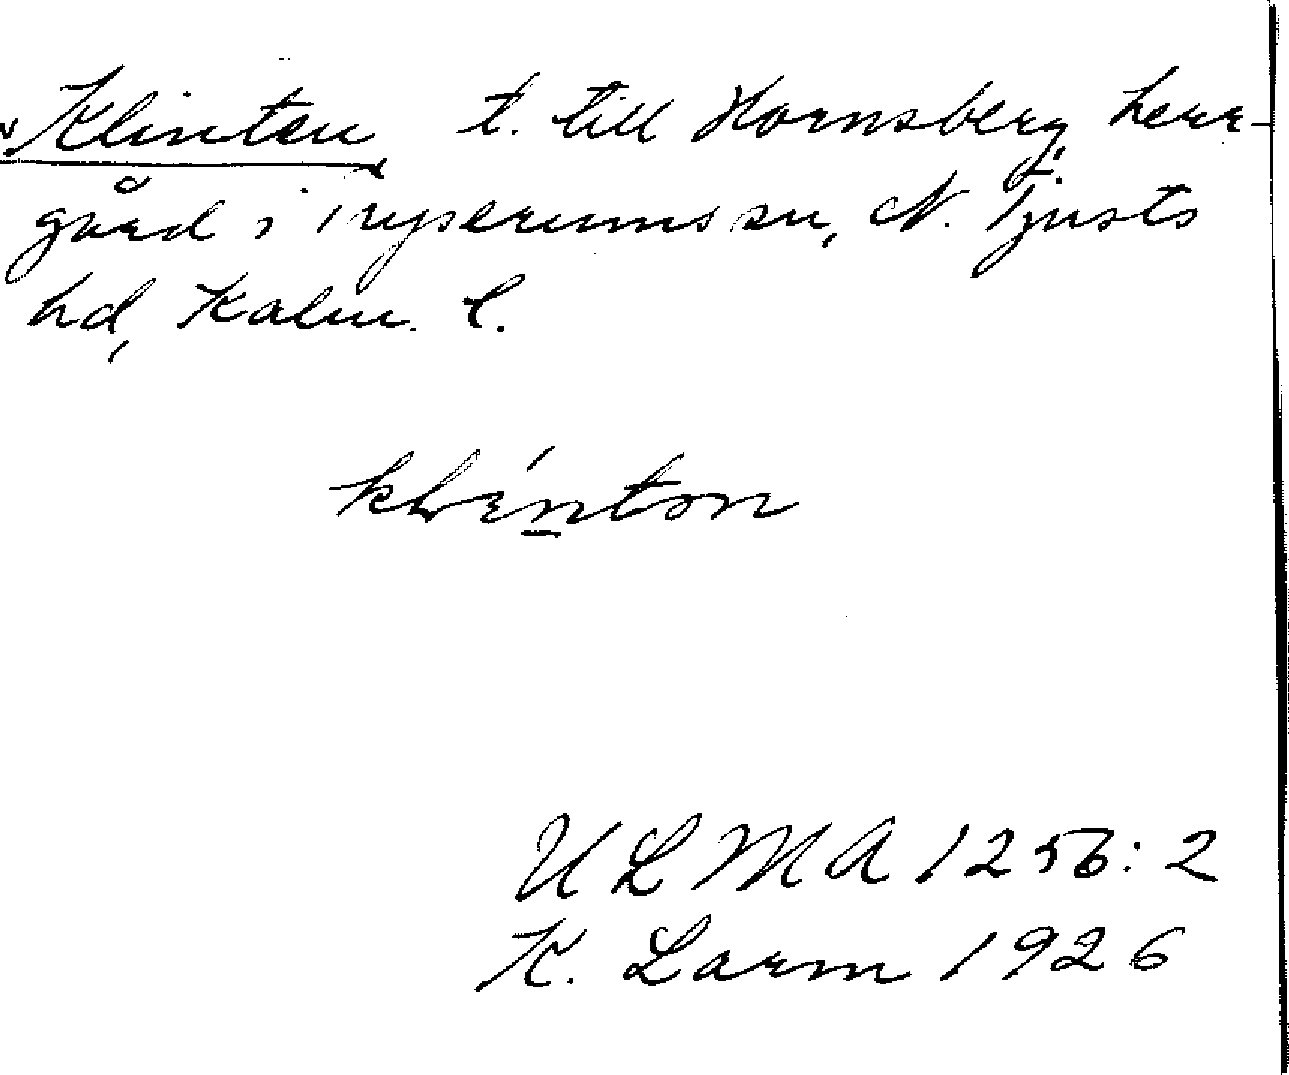 Klinten t. till Hornsberg, herr-
gård i Tryserums sn, N. Tjusts
hd, Kalm. l.
klinton
ULMA 1256:2
K. Larm 1926